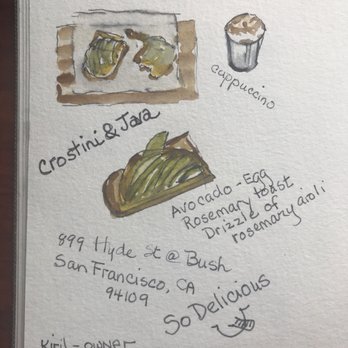 cappuccino
Crostini & Java
Avocado - Egg
Rosemary toast
Drizzle of
rosemary aioli
899 Hyde St @ Bush
San Francisco, CA
94109
So Delicious
Kiril - owner